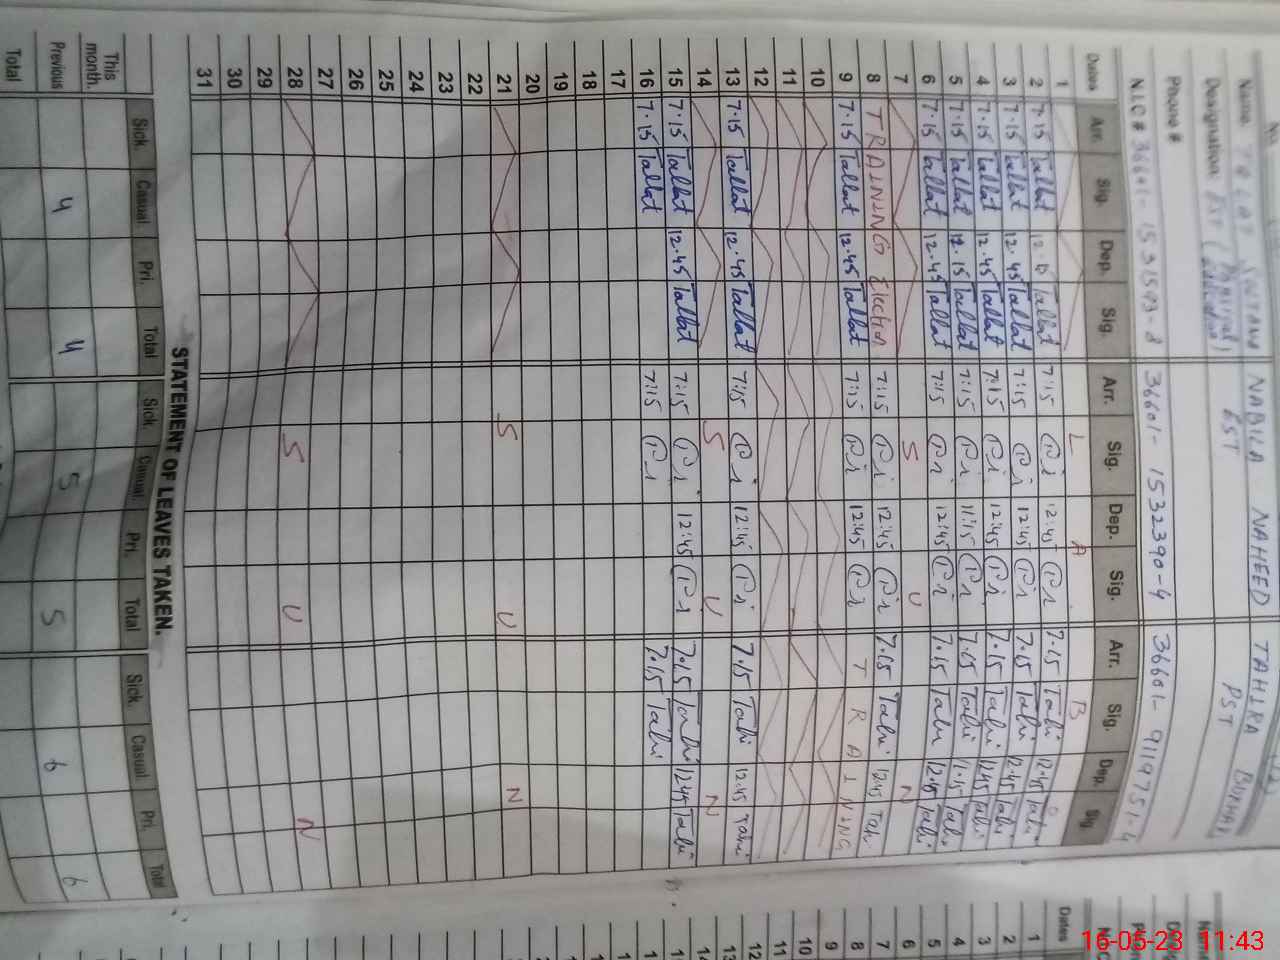 Name. TALAT SULTANA NABILA NAHEED TAHIRA BUKHARI
Designation. EST ( EST PST
Phone #
N.I.C # 36601-1531593-8 36601-1532390-4 36601-9119751-4
Dates Arr. Sig. Dep. Sig. Arr. Sig. Dep. Sig. Arr. Sig. Dep. Sig.
1 L A B O
2 7.15 Tallat Tallat 7:15 12:45 7.15 Tahi 12.45 Tahi
3 7.15 Tallat 12.45 Tallat 7:15 12:45 7.15 Tahi 12.45 Tahi
4 7.15 Tallat 12.45 Tallat 7:15 12:45 7.15 Tahi 12.45 Tahi
5 7.15 Tallat 12.15 Tallat 7:15 11:15 7.15 Tahi 11.15 Tahi
6 7.15 Tallat 12.45 Tallat 7:15 12:45 7.15 Tahi 12.45 Tahi
7 S U N
8 TRAINING Election 7:15 12:45 7.15 Tahi 12.45 Tahi
9 7.15 Tallat 12.45 Tallat 7:15 12:45 TRAINING
10
11
12
13 7.15 Tallat 12.45 Tallat 7:15 12:45 7.15 Tahi 12.45 Tahi
14 S U N
15 7.15 Tallat 12.45 Tallat 7:15 12:45 7.15 Tahi 12.45 Tahi
16 7.15 Tallat 7:15 7.15 Tahi
17
18
19
20
21 S U N
22
23
24
25
26
27
28 S U N
29
30
31
STATEMENT OF LEAVES TAKEN.
Sick. Casual Pri. Total Sick. Casual. Pri. Total Sick. Casual Pri. Total
This month.
Previous 4 4 5 5 6 6
Total
Dates
1
2
3
4
5
6
7
8
9
10
11
12
13
14
16-05-23 11:43